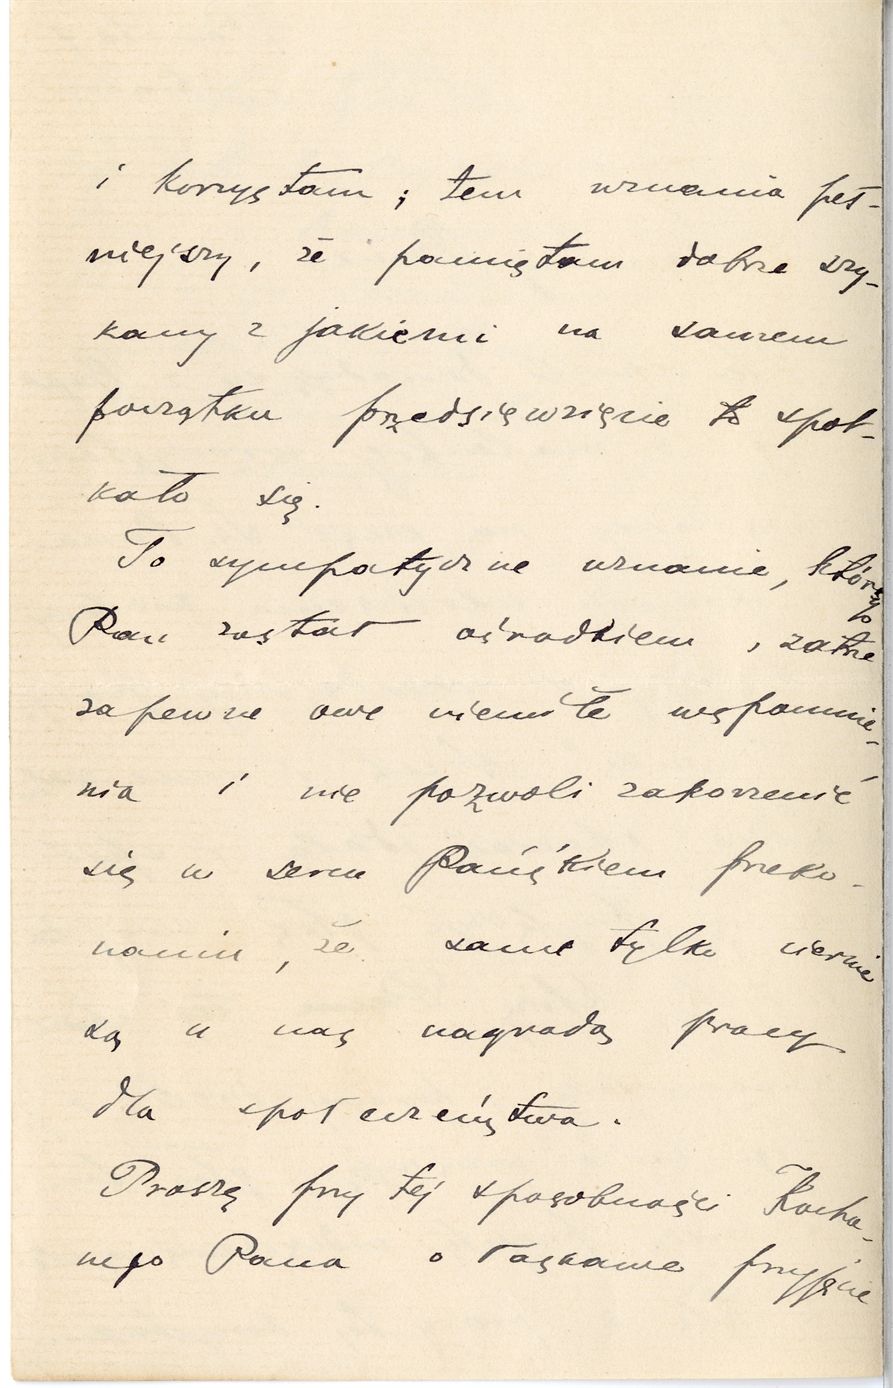 i korzystam; tem uznania peł-
niejszy, że pamiętam dobrze szy-
kany z jakiemi na samem
początku przedsięwzięcie to spot-
kało się.
To sympatyczne uznanie, którego
Pan został ośrodkiem, zatrze
zapewne owe niemiłe wspomnie-
nia i nie pozwoli zakorzenić
się w sercu Pańskiem przeko-
naniu, że same tylko ciernie
są u nas nagrodą pracy
dla społeczeństwa.
Proszę przy tej sposobności Kocha-
nego Pana o łaskawe przyjęcie